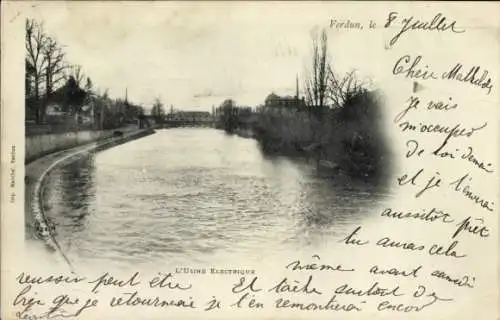 Verdun, le 8 Juillet
Chère Mathilde
je vais
m'occuper
de toi demain
et je l'enverrai
aussitôt prêt
tu auras cela
même avant samedi
L'USINE ELECTRIQUE
reussir peut être
bien que je retournerais
Et tâche surtout de
Et je te remontrai encor
Imp. Marchal, Verdun